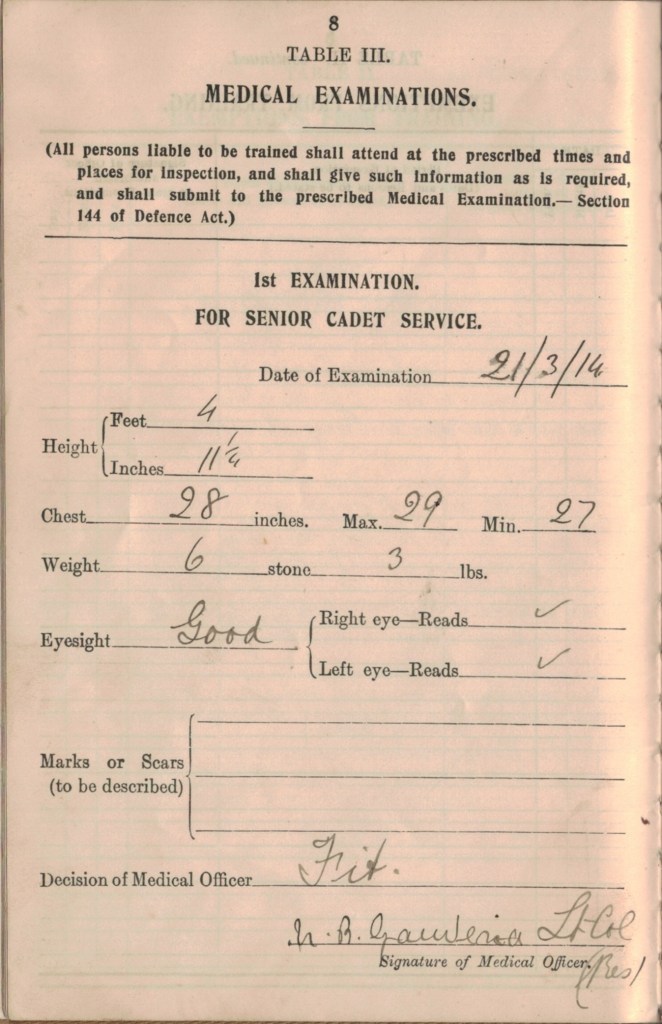 8
TABLE III.
MEDICAL EXAMINATIONS.
(All persons liable to be trained shall attend at the prescribed times and
places for inspection, and shall give such information as is required,
and shall submit to the prescribed Medical Examination.— Section
144 of Defence Act.)
1st EXAMINATION.
FOR SENIOR CADET SERVICE.
Date of Examination 21/3/14
Height
Feet 4
Inches 11 1/4
Chest 28 inches. Max. 29 Min. 27
Weight 6 stone 3 lbs.
Eyesight Good
Right eye—Reads ✓
Left eye—Reads ✓
Marks or Scars
(to be described)
Decision of Medical Officer Fit.
B. Lt-Col
Signature of Medical Officer. (Res)